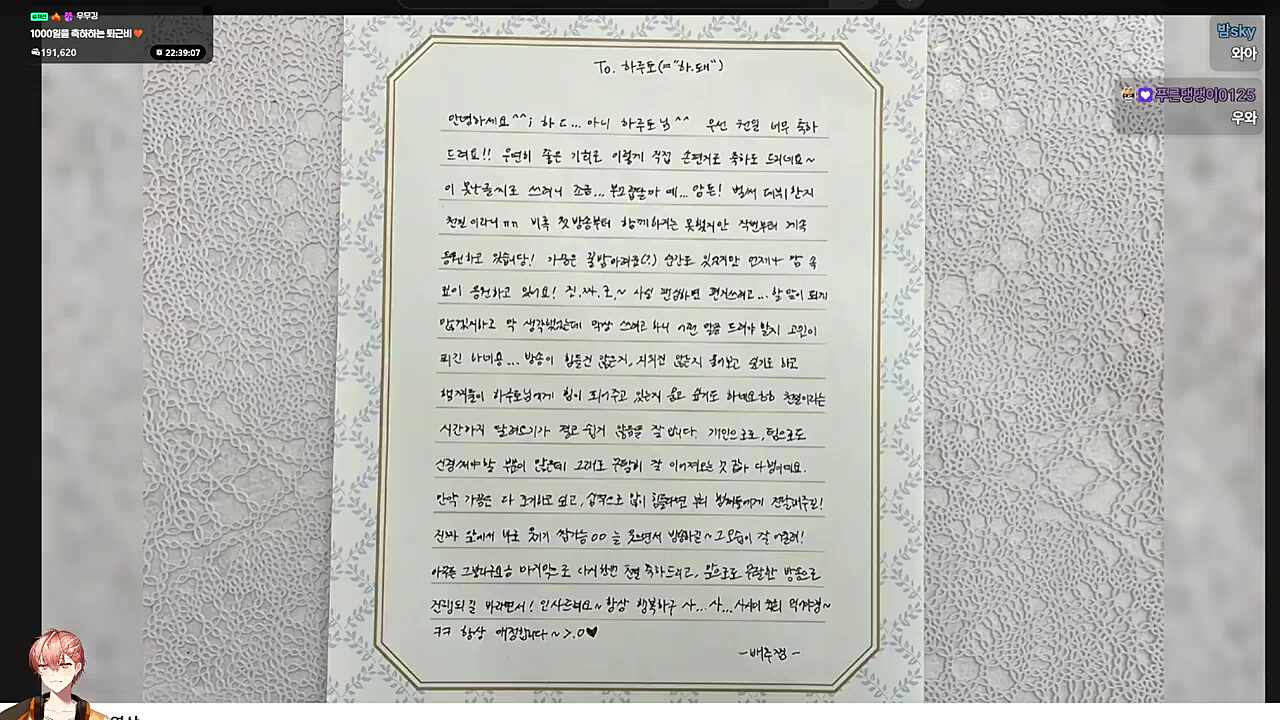 우무깅
1000일을 축하하는 퇴근비
191,620
22:39:07
밤sky
와아
푸른댕댕이0125
우와
To. 하루토(="하.돼")
안녕하세요^^; 하ㄷ... 아니 하루토님^^ 우선 천일 너무 축하
드려요!! 우연히 좋은 기회로 이렇게 직접 손편지로 축하도 드리네요~
이 못난글씨로 쓰려니 조금... 부끄럽달까 예... 암튼! 벌써 데뷔한지
천일이라니 ㅠㅠ 비록 첫방송부터 함께하지는 못했지만 작년부터 계속
응원하고 있습니당! 가끔은 순간도 있지만 언제나 맘 속
깊이 응원하고 있어요! 진.짜.로.~ 사실 편지쓰려고... 할 말이 되게
많겠거니하고 막 생각했었는데 막상 쓰려고 하니 어떤 말을 드려야 할지 고민이
되긴 하네용... 방송이 힘들진 않은지, 지치진 않은지 물어보고 싶기도 하고
햄찌들이 하루토님에게 힘이 되어주고 있는지 묻고 싶기도 하네요 천일이라는
시간까지 달려오기가 결코 쉽게 않음을 잘 압니다. 개인으로도, 팀으로도
신경써야할 부분이 많은데 그래도 무탈히 잘 이어져오는 것 같아 다행이에요.
만약 가끔은 다 포기하고 싶고, 심적으로 많이 힘들다면 우리 햄찌들에게 전달해주길!
진짜 앞에서 나온 웃기기 쌉가능 ㅇㅇ 늘 웃으면서 방송하길~ 그 모습이 잘 어울려!
아무튼 그렇다구요ㅎ 마지막으로 다시한번 천일 축하드리고, 앞으로도 무탈한 방송으로
진행되길 바라면서! 인사드려요~ 항상 행복하구 사... 사...
ㅋㅋ 항상 애정합니다~ >.0♥
-배추쩡-